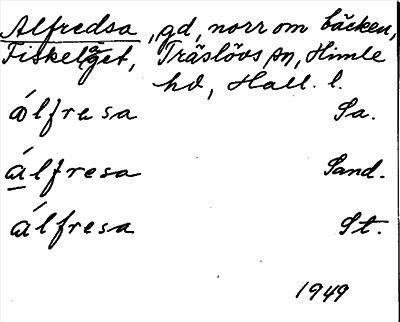 Alfredsa, gd, norr om bäcken,
Fiskeläget, Träslövs sn, Himle
hd, Hall. l.
álfresa Sa.
álfresa Sand.
álfresa St.
1949